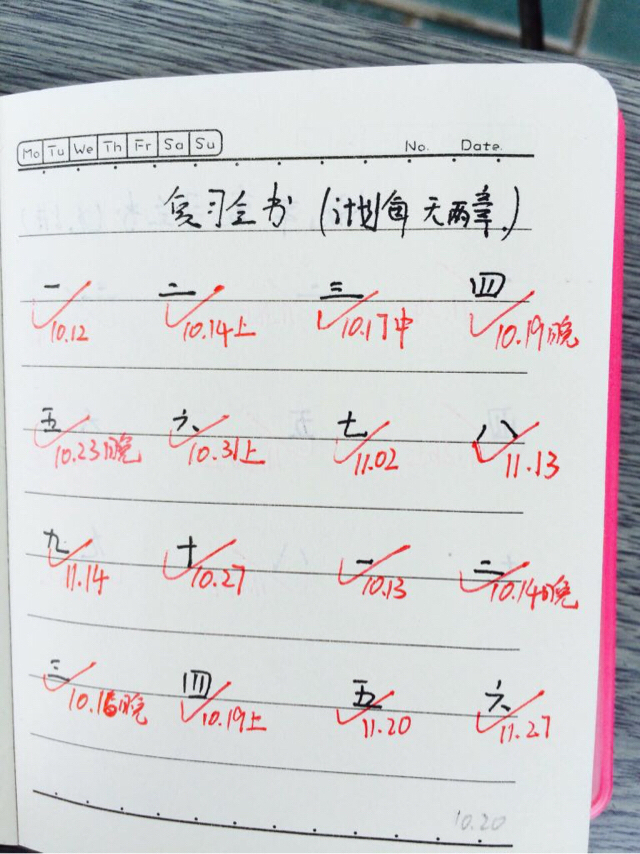 Mo Tu We Th Fr Sa Su No. Date.
复习全书（计划每天两章.）
一 二 三 四
10.12 10.14上 10.17中 10.19晚
五 六 七 八
10.23晚 10.31上 11.02 11.13
九 十 一 二
11.14 10.27 10.13 10.14晚
三 四 五 六
10.16晚 10.19上 11.20 11.27
10.20